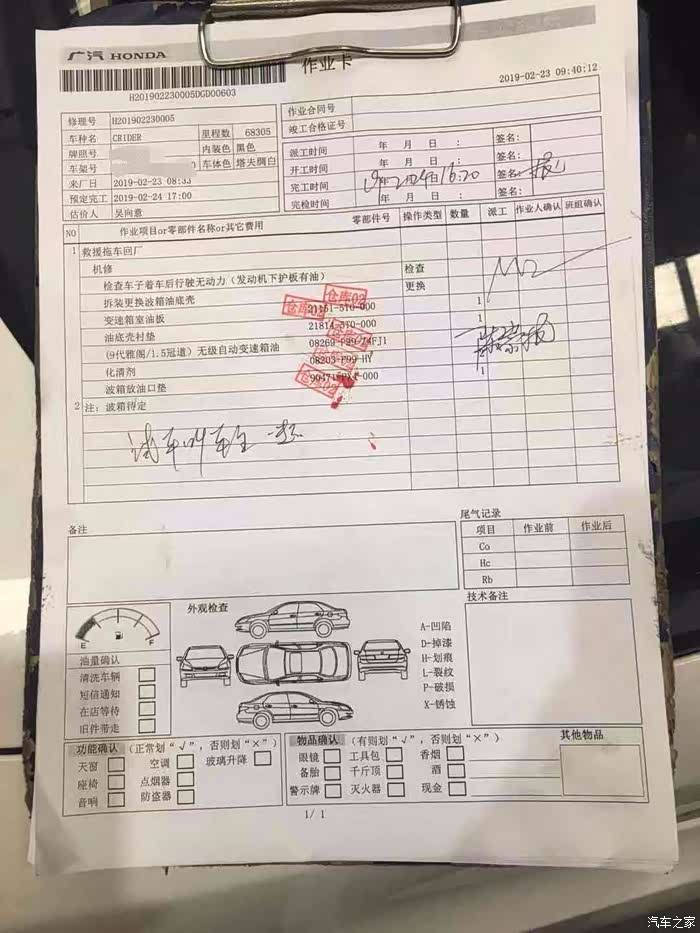 广汽 HONDA
作业卡
H201902230005DGD00603
2019-02-23 09:46:12
修理号 H201902230005
车种名 CRIDER 里程数 68305
牌照号 内装色 黑色
车架号 车体色 塔夫绸白
来厂日 2019-02-23 08:33
预定完工 2019-02-24 17:00
估价人 吴向意
作业合同号
竣工合格证号
派工时间 年 月 日 : 签名:
开工时间 年 月 日 : 签名:
完工时间 19年2月24日16:20 签名:
完检时间 年 月 日 : 签名:
NO 作业项目or零部件名称or其它费用 零部件号 操作类型 数量 派工 作业人确认 班组确认
1 救援拖车回厂
机修
检查车子着车后行驶无动力（发动机下护板有油） 检查
拆装更换波箱油底壳 更换
变速箱室油板 21151-5T0-000 1
油底壳衬垫 21814-5T0-000 1
(9代雅阁/1.5冠道）无级自动变速箱油 08269-P99-Z4FJ1
化清剂 08203-P99-HY
波箱放油口垫 90471-PX4-000 1
仓库02
仓库02
仓库02
仓库02
仓库02
2 注：波箱待定
备注
尾气记录
项目 作业前 作业后
Co
Hc
Rb
技术备注
外观检查
E F
A-凹陷
D-掉漆
H-划痕
L-裂纹
P-破损
X-锈蚀
油量确认
清洗车辆
短信通知
在店等待
旧件带走
功能确认 （正常划“√”，否则划“×”）
天窗 空调 玻璃升降
座椅 点烟器
音响 防盗器
物品确认 （有则划“√”，否则划“×”）
眼镜 工具包 香烟
备胎 千斤顶 酒
警示牌 灭火器 现金
其他物品
1/ 1
汽车之家